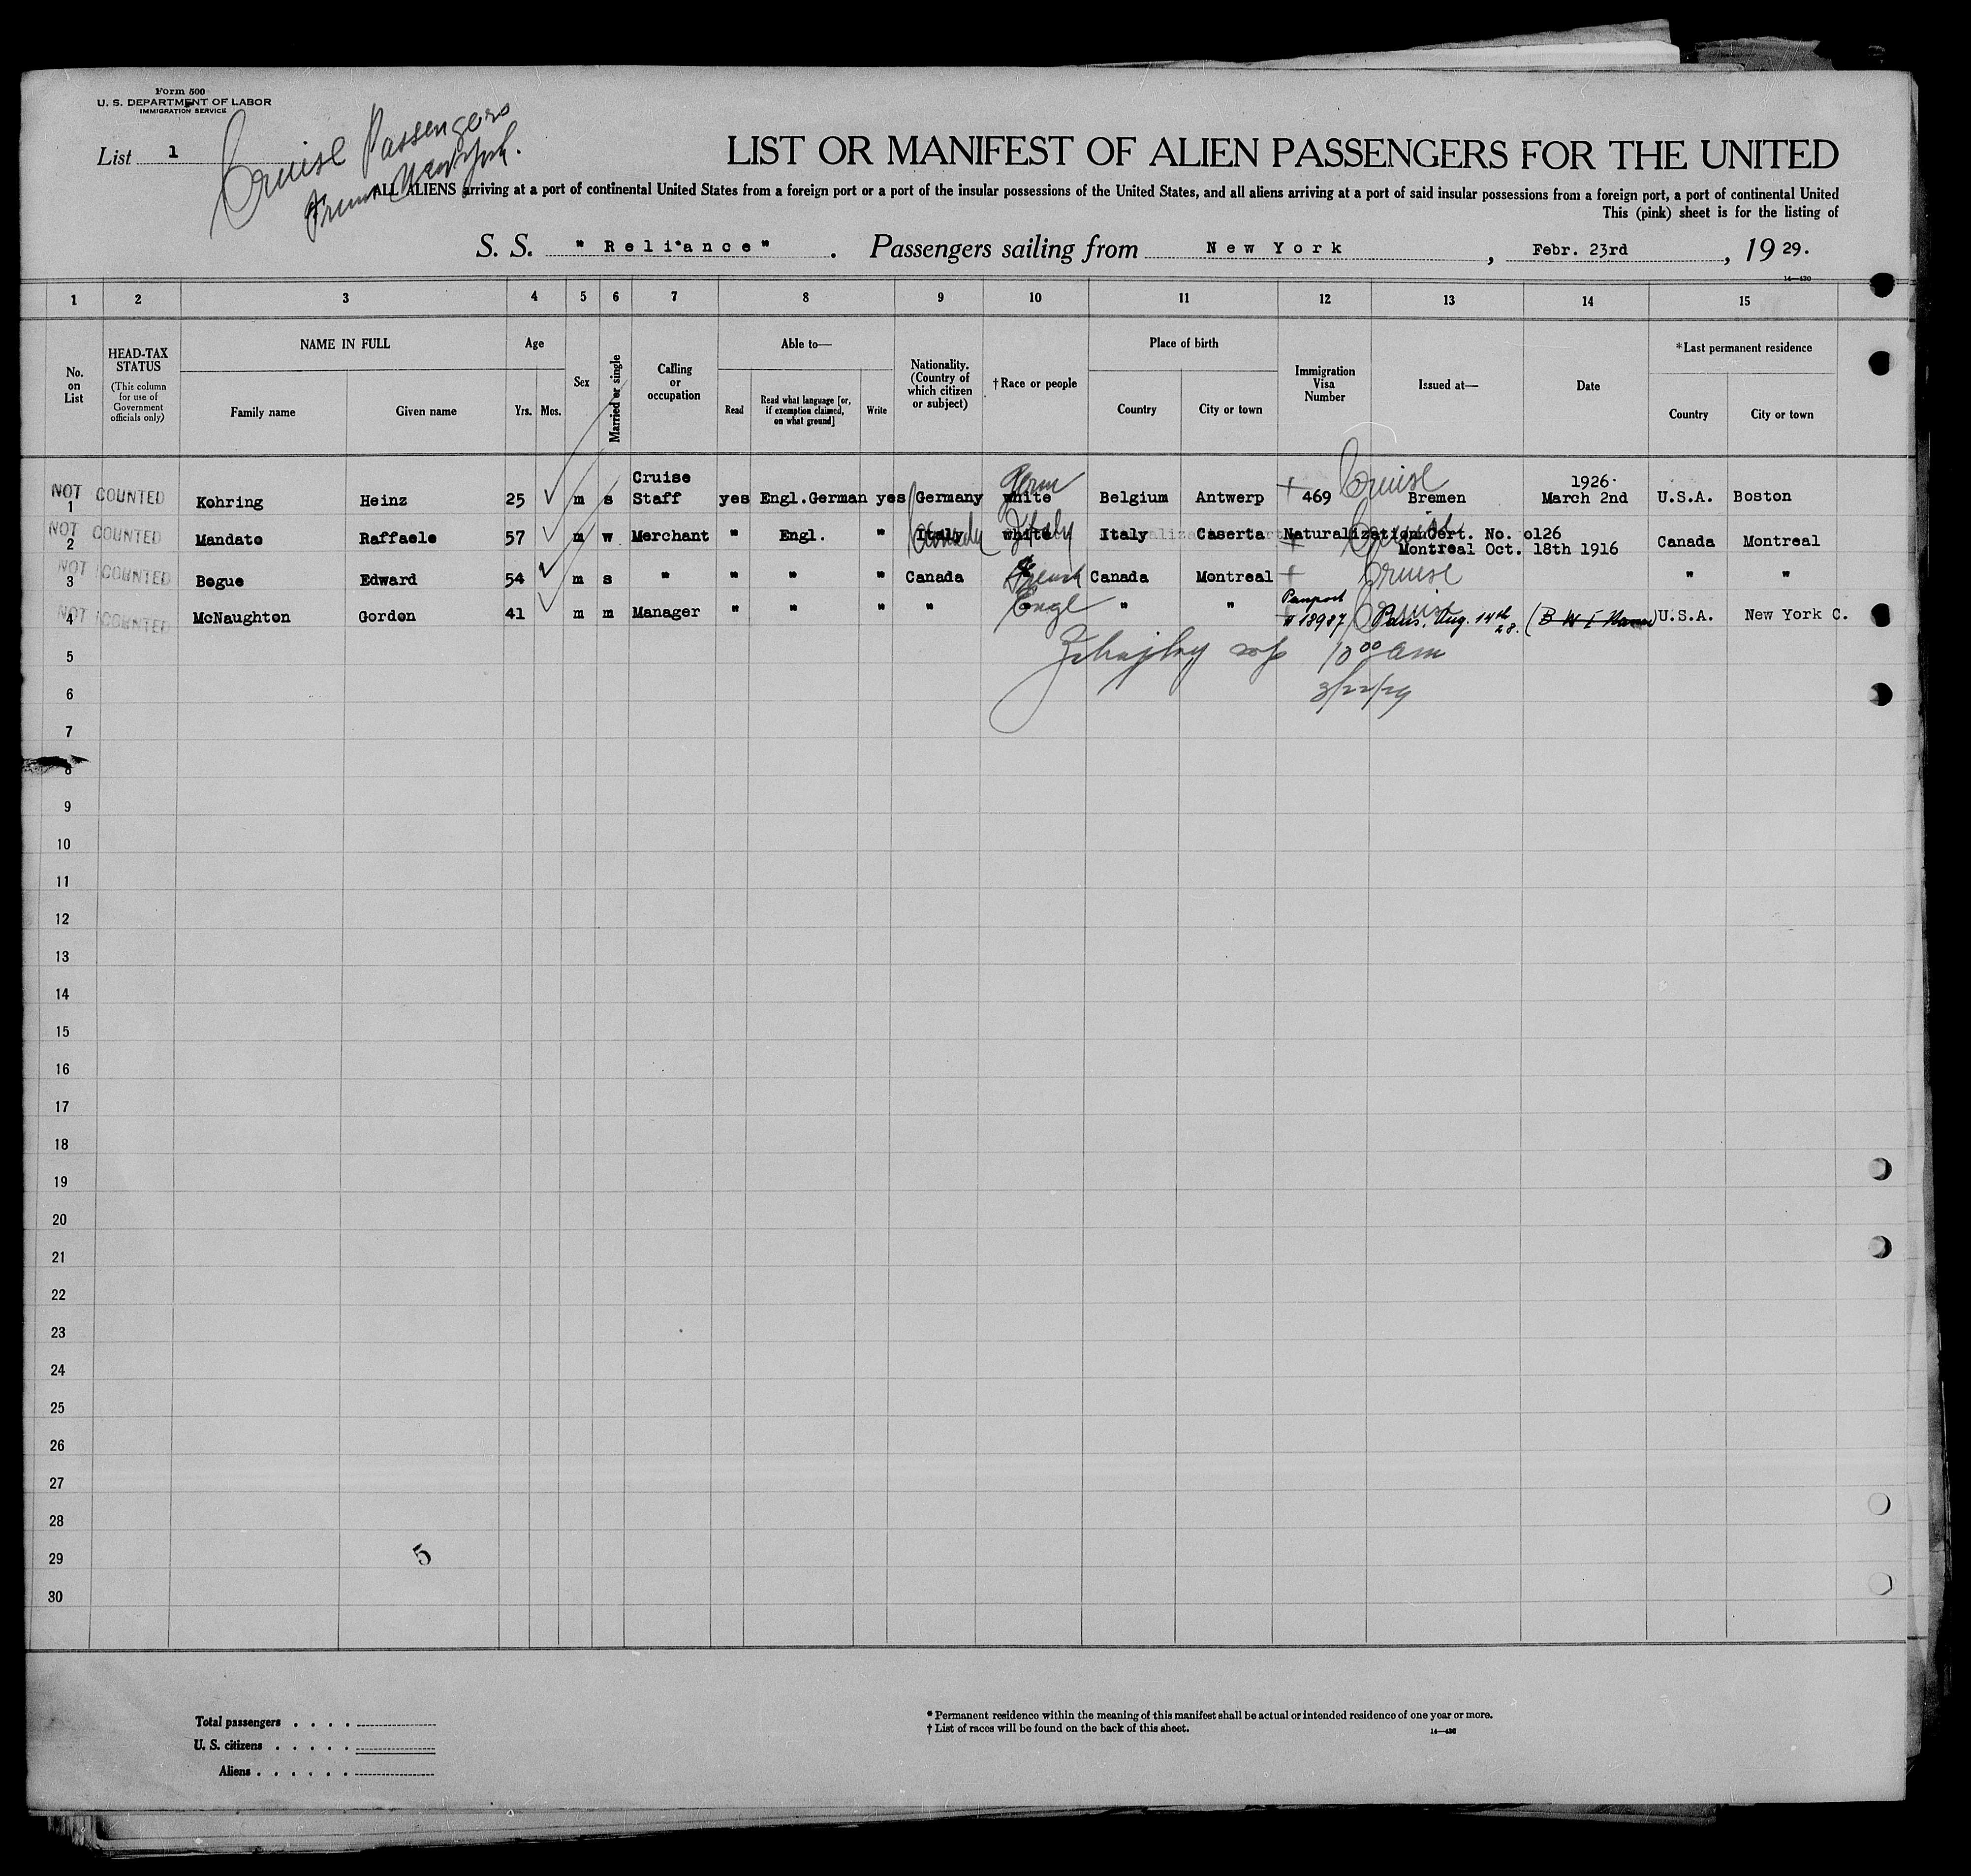 Form 500
U. S. DEPARTMENT OF LABOR
IMMIGRATION SERVICE
List 1
Cruise Passengers
From New York.
LIST OR MANIFEST OF ALIEN PASSENGERS FOR THE UNITED
ALL ALIENS arriving at a port of continental United States from a foreign port or a port of the insular possessions of the United States, and all aliens arriving at a port of said insular possessions from a foreign port, a port of continental United
This (pink) sheet is for the listing of
S. S. "Reliance". Passengers sailing from New York, Febr. 23rd, 1929.
14—430
1 2 3 4 5 6 7 8 9 10 11 12 13 14 15
No. on List
HEAD-TAX STATUS (This column for use of Government officials only)
NAME IN FULL
Family name Given name
Age
Yrs. Mos.
Sex
Married or single
Calling or occupation
Able to—
Read
Read what language [or, if exemption claimed, on what ground]
Write
Nationality. (Country of which citizen or subject)
†Race or people
Place of birth
Country City or town
Immigration Visa Number
Issued at—
Date
*Last permanent residence
Country City or town
NOT COUNTED 1 Kohring Heinz 25 m s Cruise Staff yes Engl.German yes Germany white Germ Belgium Antwerp 469 Cruise Bremen 1926. March 2nd U.S.A. Boston
NOT COUNTED 2 Mandato Raffaele 57 m w Merchant " Engl. " Italy white Italy Italy Caserta Naturalization Cert. No. o126 Cruise
Montreal Oct. 18th 1916 Canada Montreal
NOT COUNTED 3 Bogue Edward 54 m s " " " " Canada French Canada Montreal Cruise " "
NOT COUNTED 4 McNaughton Gordon 41 m m Manager " " " " Engl " " Passport # 18987 Cruise Paris, Aug. 14th 28. U.S.A. New York C.
5 10 00 am
6 3/22/29
7
8
9
10
11
12
13
14
15
16
17
18
19
20
21
22
23
24
25
26
27
28
29
5
30
Total passengers . . . .
U. S. citizens . . . . .
Aliens . . . . . .
* Permanent residence within the meaning of this manifest shall be actual or intended residence of one year or more.
† List of races will be found on the back of this sheet.
14—430